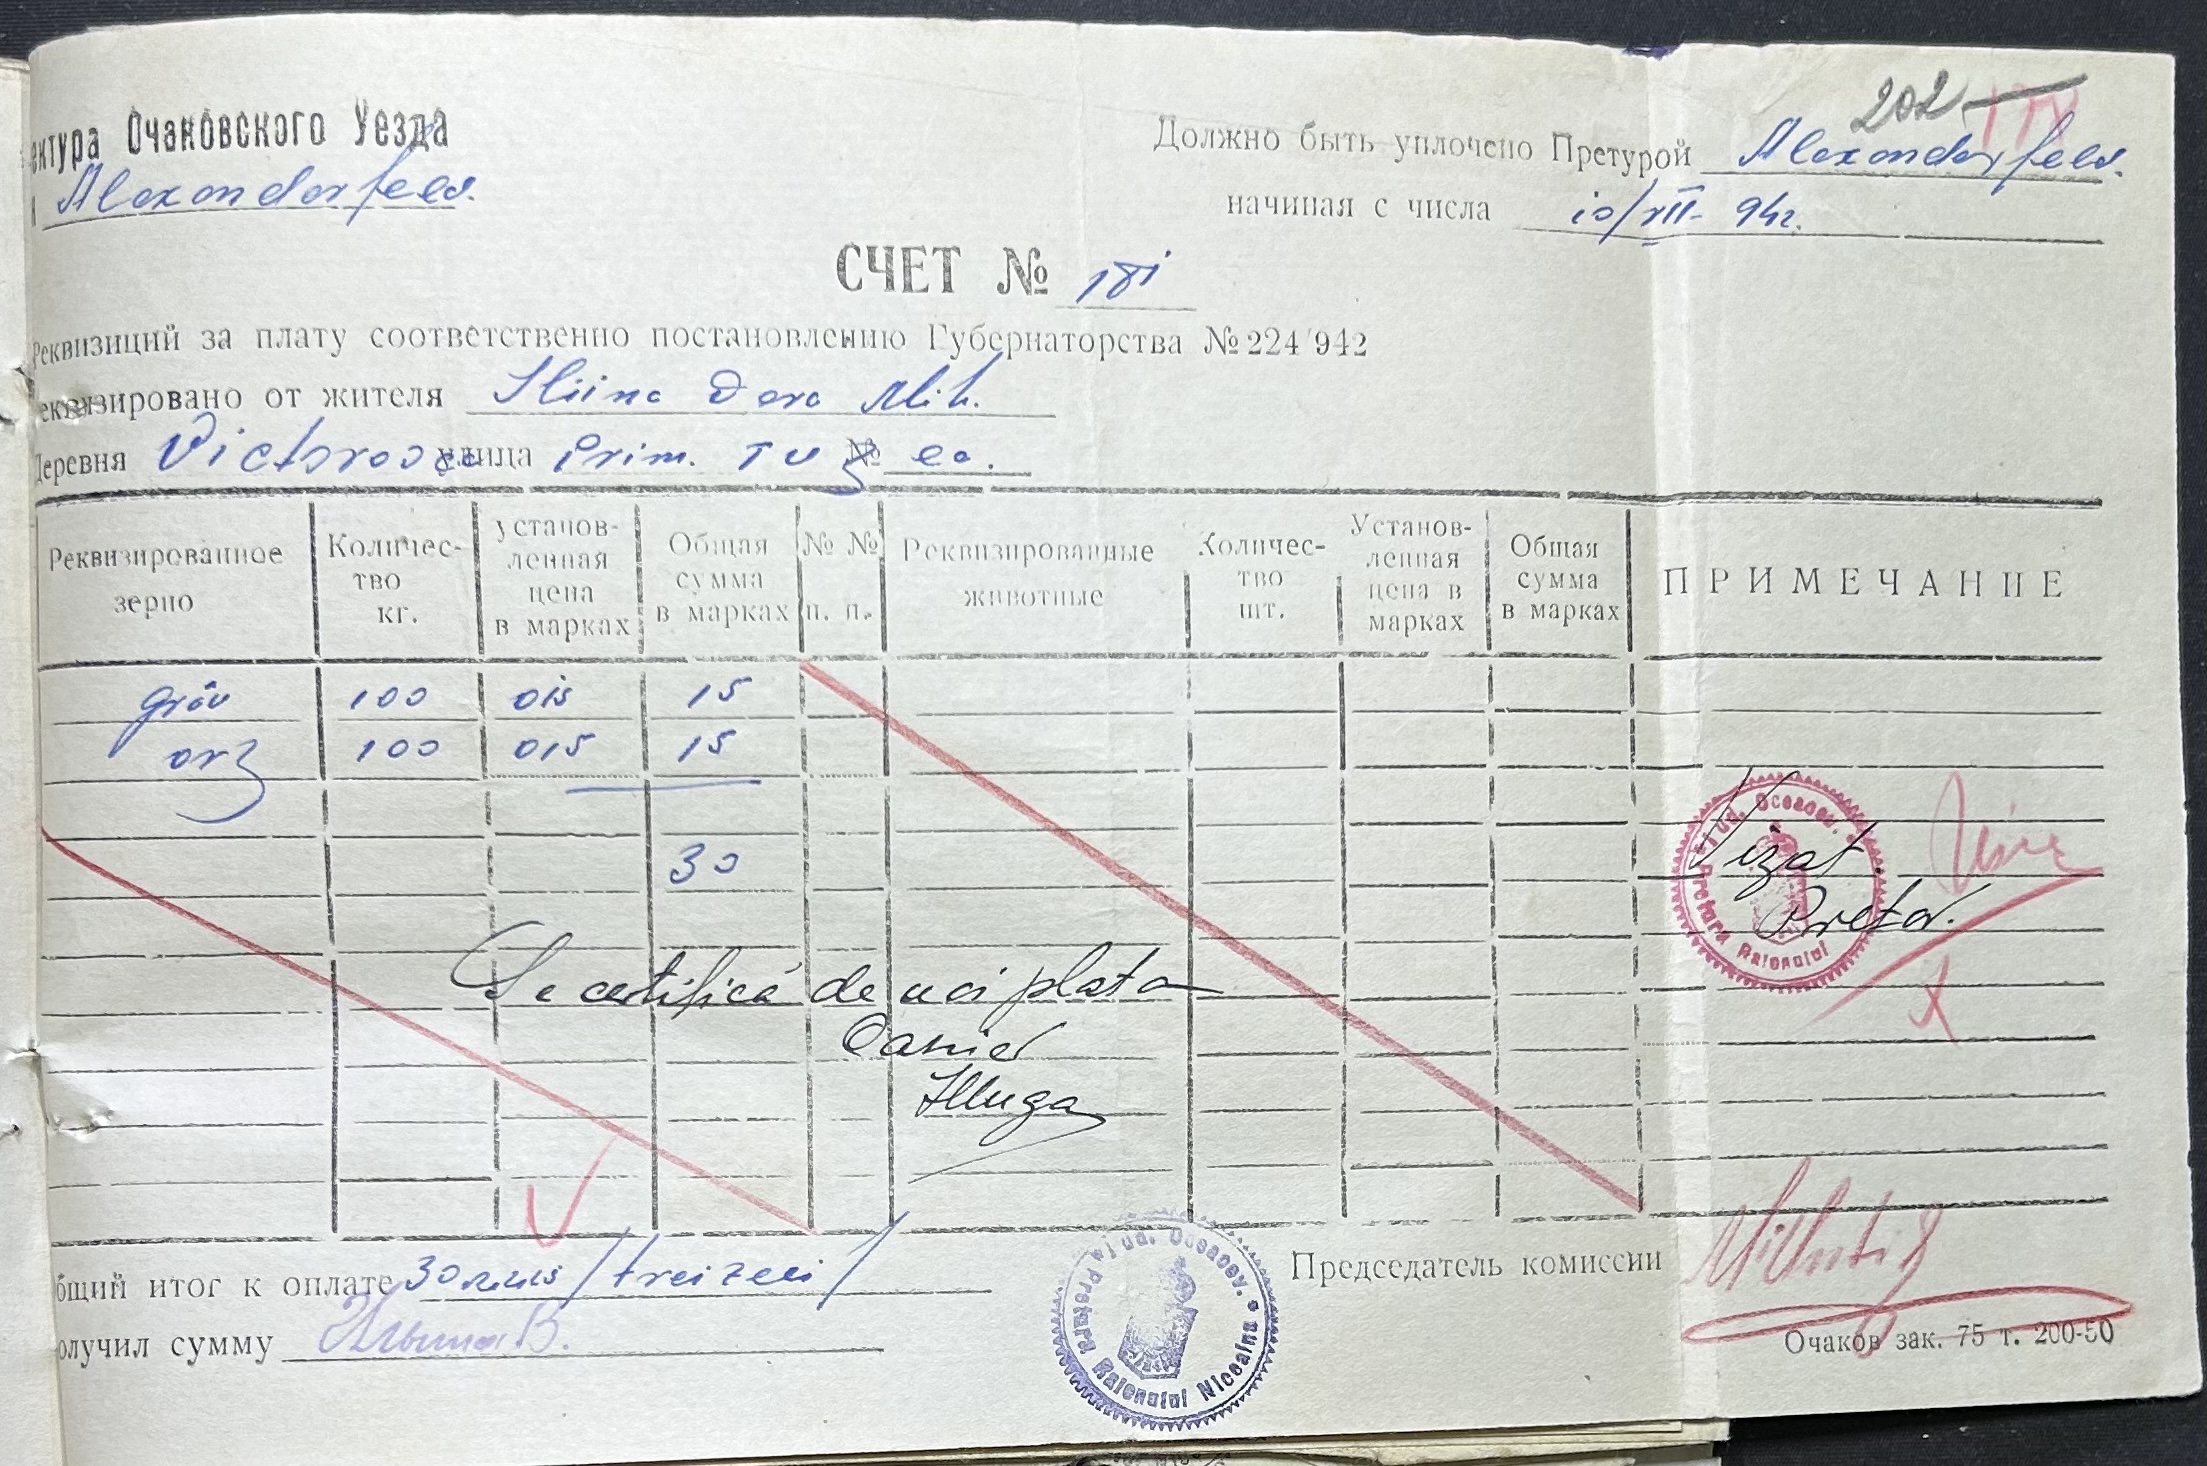 ектура Очаковского Уезда
Alexondorfeld.
202
Должно быть уплочено Претурой Alexondorfeld.
начиная с числа 10/XII- 942.
СЧЕТ № 181
Реквизиций за плату соответственно постановлению Губернаторства №224/942
еквизировано от жителя Iliina Dora Mih.
Деревня улица Prim. Tuz № ea.
Реквизированное зерно
Количес-тво кг.
установ-ленная цена в марках
Общая сумма в марках
№ № п. п.
Реквизированные животные
Количес-тво шт.
Установ-ленная цена в марках
Общая сумма в марках
ПРИМЕЧАНИЕ
grâu 100 015 15
orz 100 015 15
30
Vizat
Pretor.
Jud. Oceacov. Pretura Raionului
Se certifică de noi plata
Casier
Председатель комиссии
бщий итог к оплате 30 /treizeci/
олучил сумму Ильина В.
Jud. Oceacov. Pretura Raionului Nicoaina
Очаков зак. 75 т. 200-50